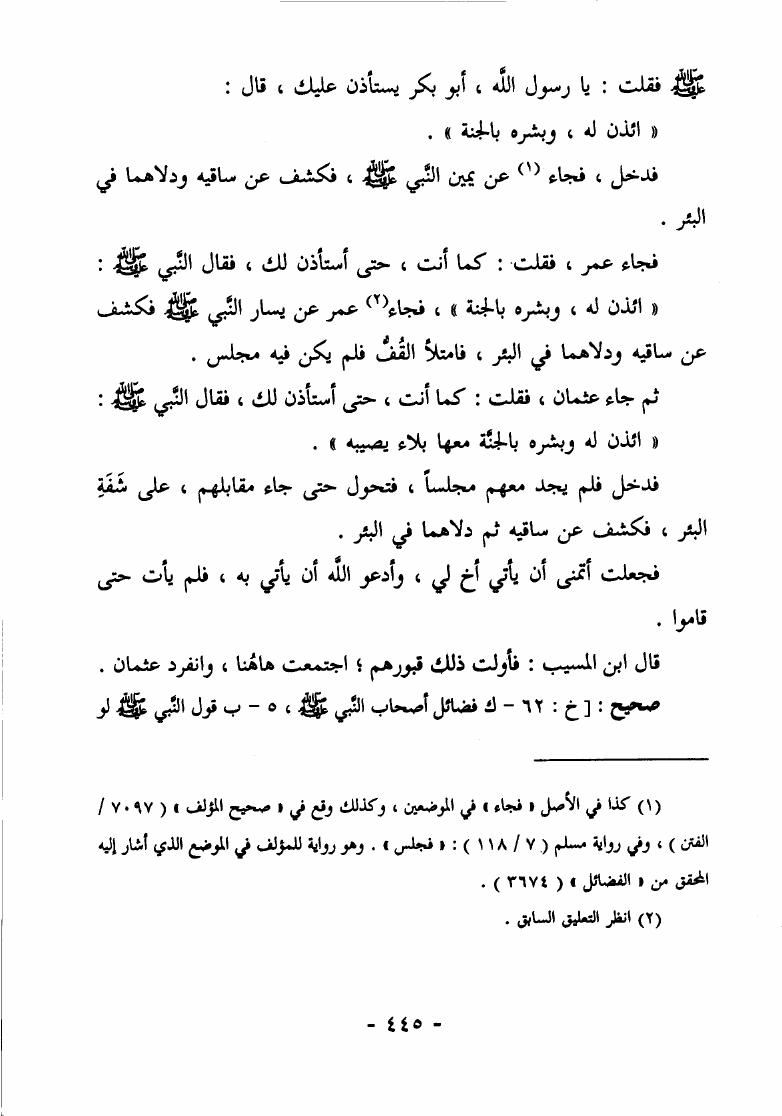 ﷺ فقلت : يا رسول اللَّه ، أبو بكر يستأذن عليك ، قال :
« ائذن له ، وبشره بالجنة » .
فدخل ، فجاء (١) عن يمين النَّبي ﷺ ، فكشف عن ساقيه ودلاهما في
البئر .
فجاء عمر ، فقلت : كما أنت ، حتى أستأذن لك ، فقال النَّبي ﷺ :
« ائذن له ، وبشره بالجنة » ، فجاء(٢) عمر عن يسار النَّبي ﷺ فكشف
عن ساقيه ودلاهما في البئر ، فامتلأ القُفُّ فلم يكن فيه مجلس .
ثم جاء عثمان ، فقلت : كما أنت ، حتى أستأذن لك ، فقال النَّبي ﷺ :
« ائذن له وبشره بالجنَّة معها بلاء يصيبه » .
فدخل فلم يجد معهم مجلساً ، فتحول حتى جاء مقابلهم ، على شَفَةِ
البئر ، فكشف عن ساقيه ثم دلاهما في البئر .
فجعلت أتمنى أن يأتي أخ لي ، وأدعو اللَّه أن يأتي به ، فلم يأت حتى
قاموا .
قال ابن المسيب : فأولت ذلك قبورهم ؛ اجتمعت هاهُنا ، وانفرد عثمان .
صحيح : [ خ : ٦٢ - ك فضائل أصحاب النَّبي ﷺ ، ٥ - ب قول النَّبي ﷺ لو
(١) كذا في الأصل « فجاء » في الموضعين ، وكذلك وقع في « صحيح المؤلف » ( ٧٠٩٧ /
الفتن ) ، وفي رواية مسلم ( ٧ / ١١٨ ) : « فجلس » . وهو رواية للمؤلف في الموضع الذي أشار إليه
المحقق من « الفضائل » ( ٣٦٧٤ ) .
(٢) انظر التعليق السابق .
- ٤٤٥ -